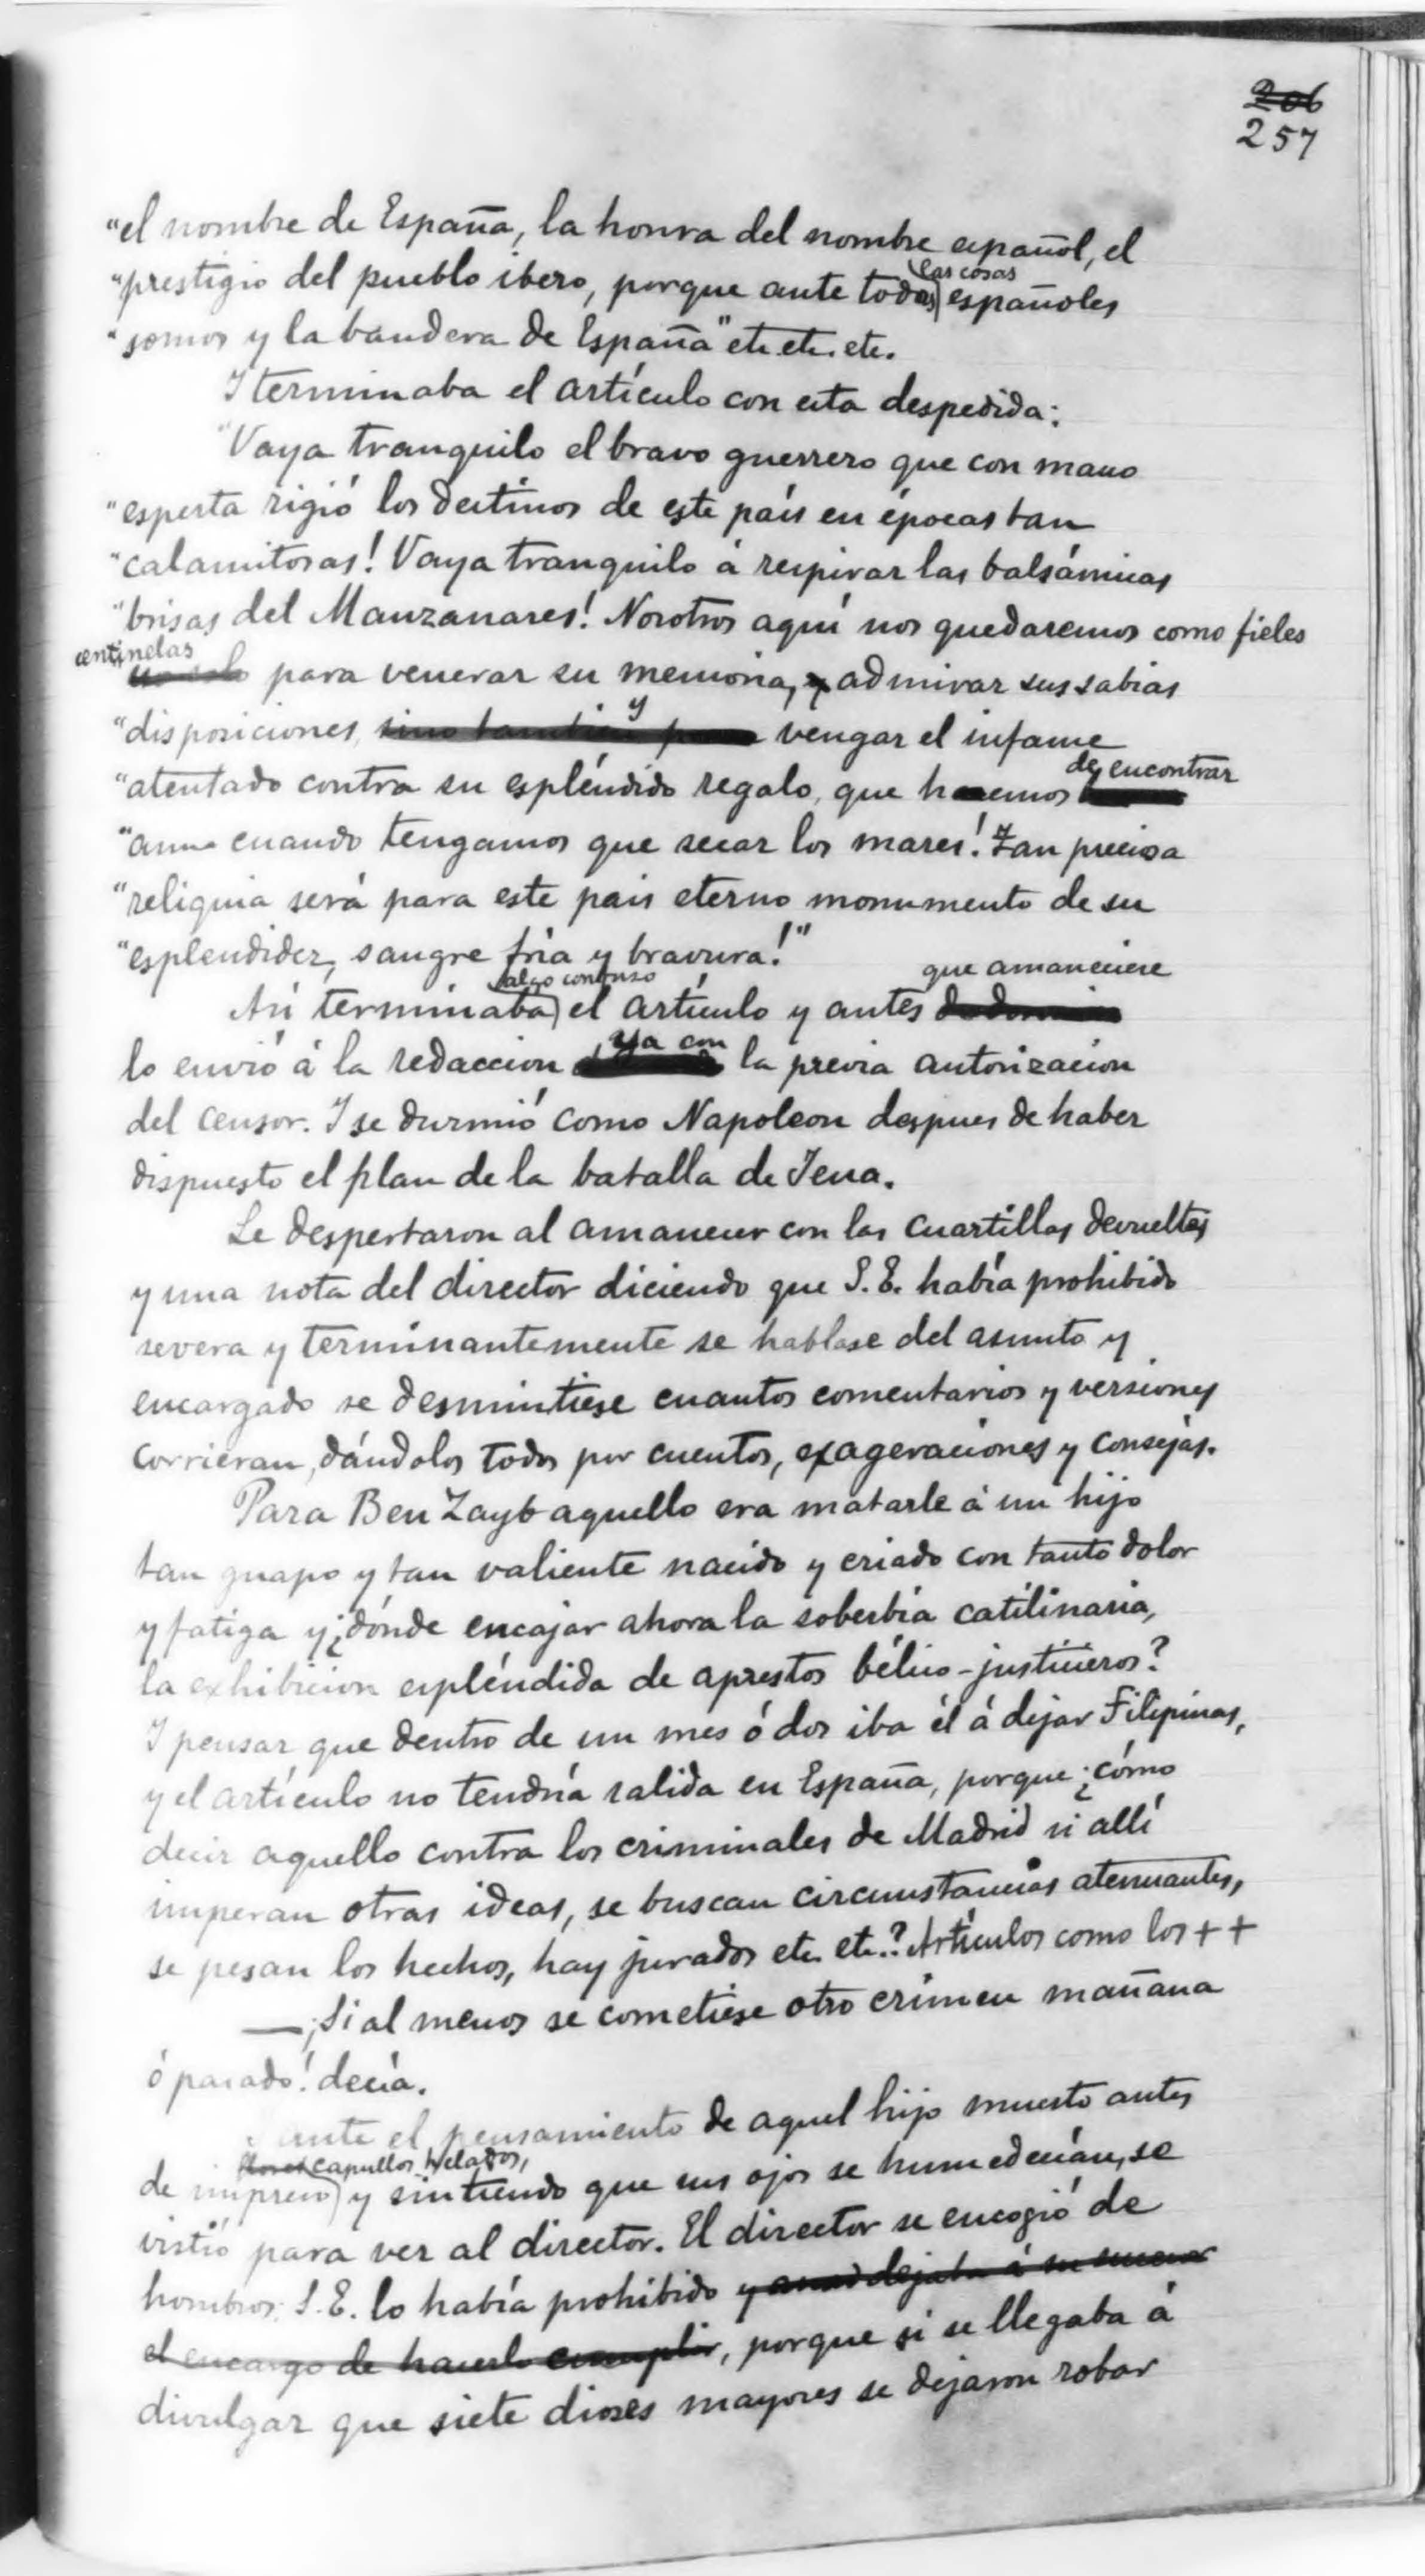 206
257
"el nombre de España, la honra del nombre español, el
las cosas
"prestigio del pueblo ibero, porque ante todas españoles
"somos y la bandera de España" etc etc. etc.
Y terminaba el artículo con esta despedida:
"Vaya tranquilo el bravo guerrero que con mano
"esperta rigió los destinos de este país en épocas tan
"calamitosas! Vaya tranquilo á respirar las balsámicas
"brisas del Manzanares! Nosotros aquí nos quedaremos como fieles
centinelas
para venerar su memoria, y admirar sus sabias
y
"disposiciones, sino también para vengar el infame
de encontrar
"atentado contra su espléndido regalo, que hemos
"aun cuando tengamos que secar los mares! Tan preciosa
"reliquia será para este pais eterno monumento de su
"esplendidez, sangre fría y bravura!"
algo confuso que amaneciere
Así terminaba el artículo y antes
ya con
lo envió á la redaccion la previa autorización
del censor. Y se durmió como Napoleon despues de haber
dispuesto el plan de la batalla de Jena.
Le despertaron al amanecer con las cuartillas devueltas
y una nota del director diciendo que S. E. había prohibido
severa y terminantemente se hablase del asunto y
encargado se desmintiese cuantos comentarios y versiones
corrieran, dándolos todos por cuentos, exageraciones y consejas.
Para Ben Zayb aquello era matarle á un hijo
tan guapo y tan valiente nacido y criado con tanto dolor
y fatiga y ¿dónde encajar ahora la soberbia catilinaria,
la exhibicion espléndida de aprestos bélico-justicieros?
Y pensar que dentro de un mes ó dos iba él á dejar Filipinas,
y el artículo no tendría salida en España, porque ¿cómo
decir aquello contra los criminales de Madrid si allí
imperan otras ideas, se buscan circunstancias atenuantes,
se pesan los hechos, hay jurados etc etc.? Artículos como los ++
—¡Si al menos se cometiese otro crimen mañana
ó pasado! decía.
ante el pensamiento de aquel hijo muerto antes
flores capullos helados,
de impreso y sintiendo que sus ojos se humedecían, se
vistió para ver al director. El director se encogió de
hombros: S. E. lo había prohibido y dejaba á su
el encargo de hacerlo cumplir, porque si se llegaba á
divulgar que siete dioses mayores se dejaron robar